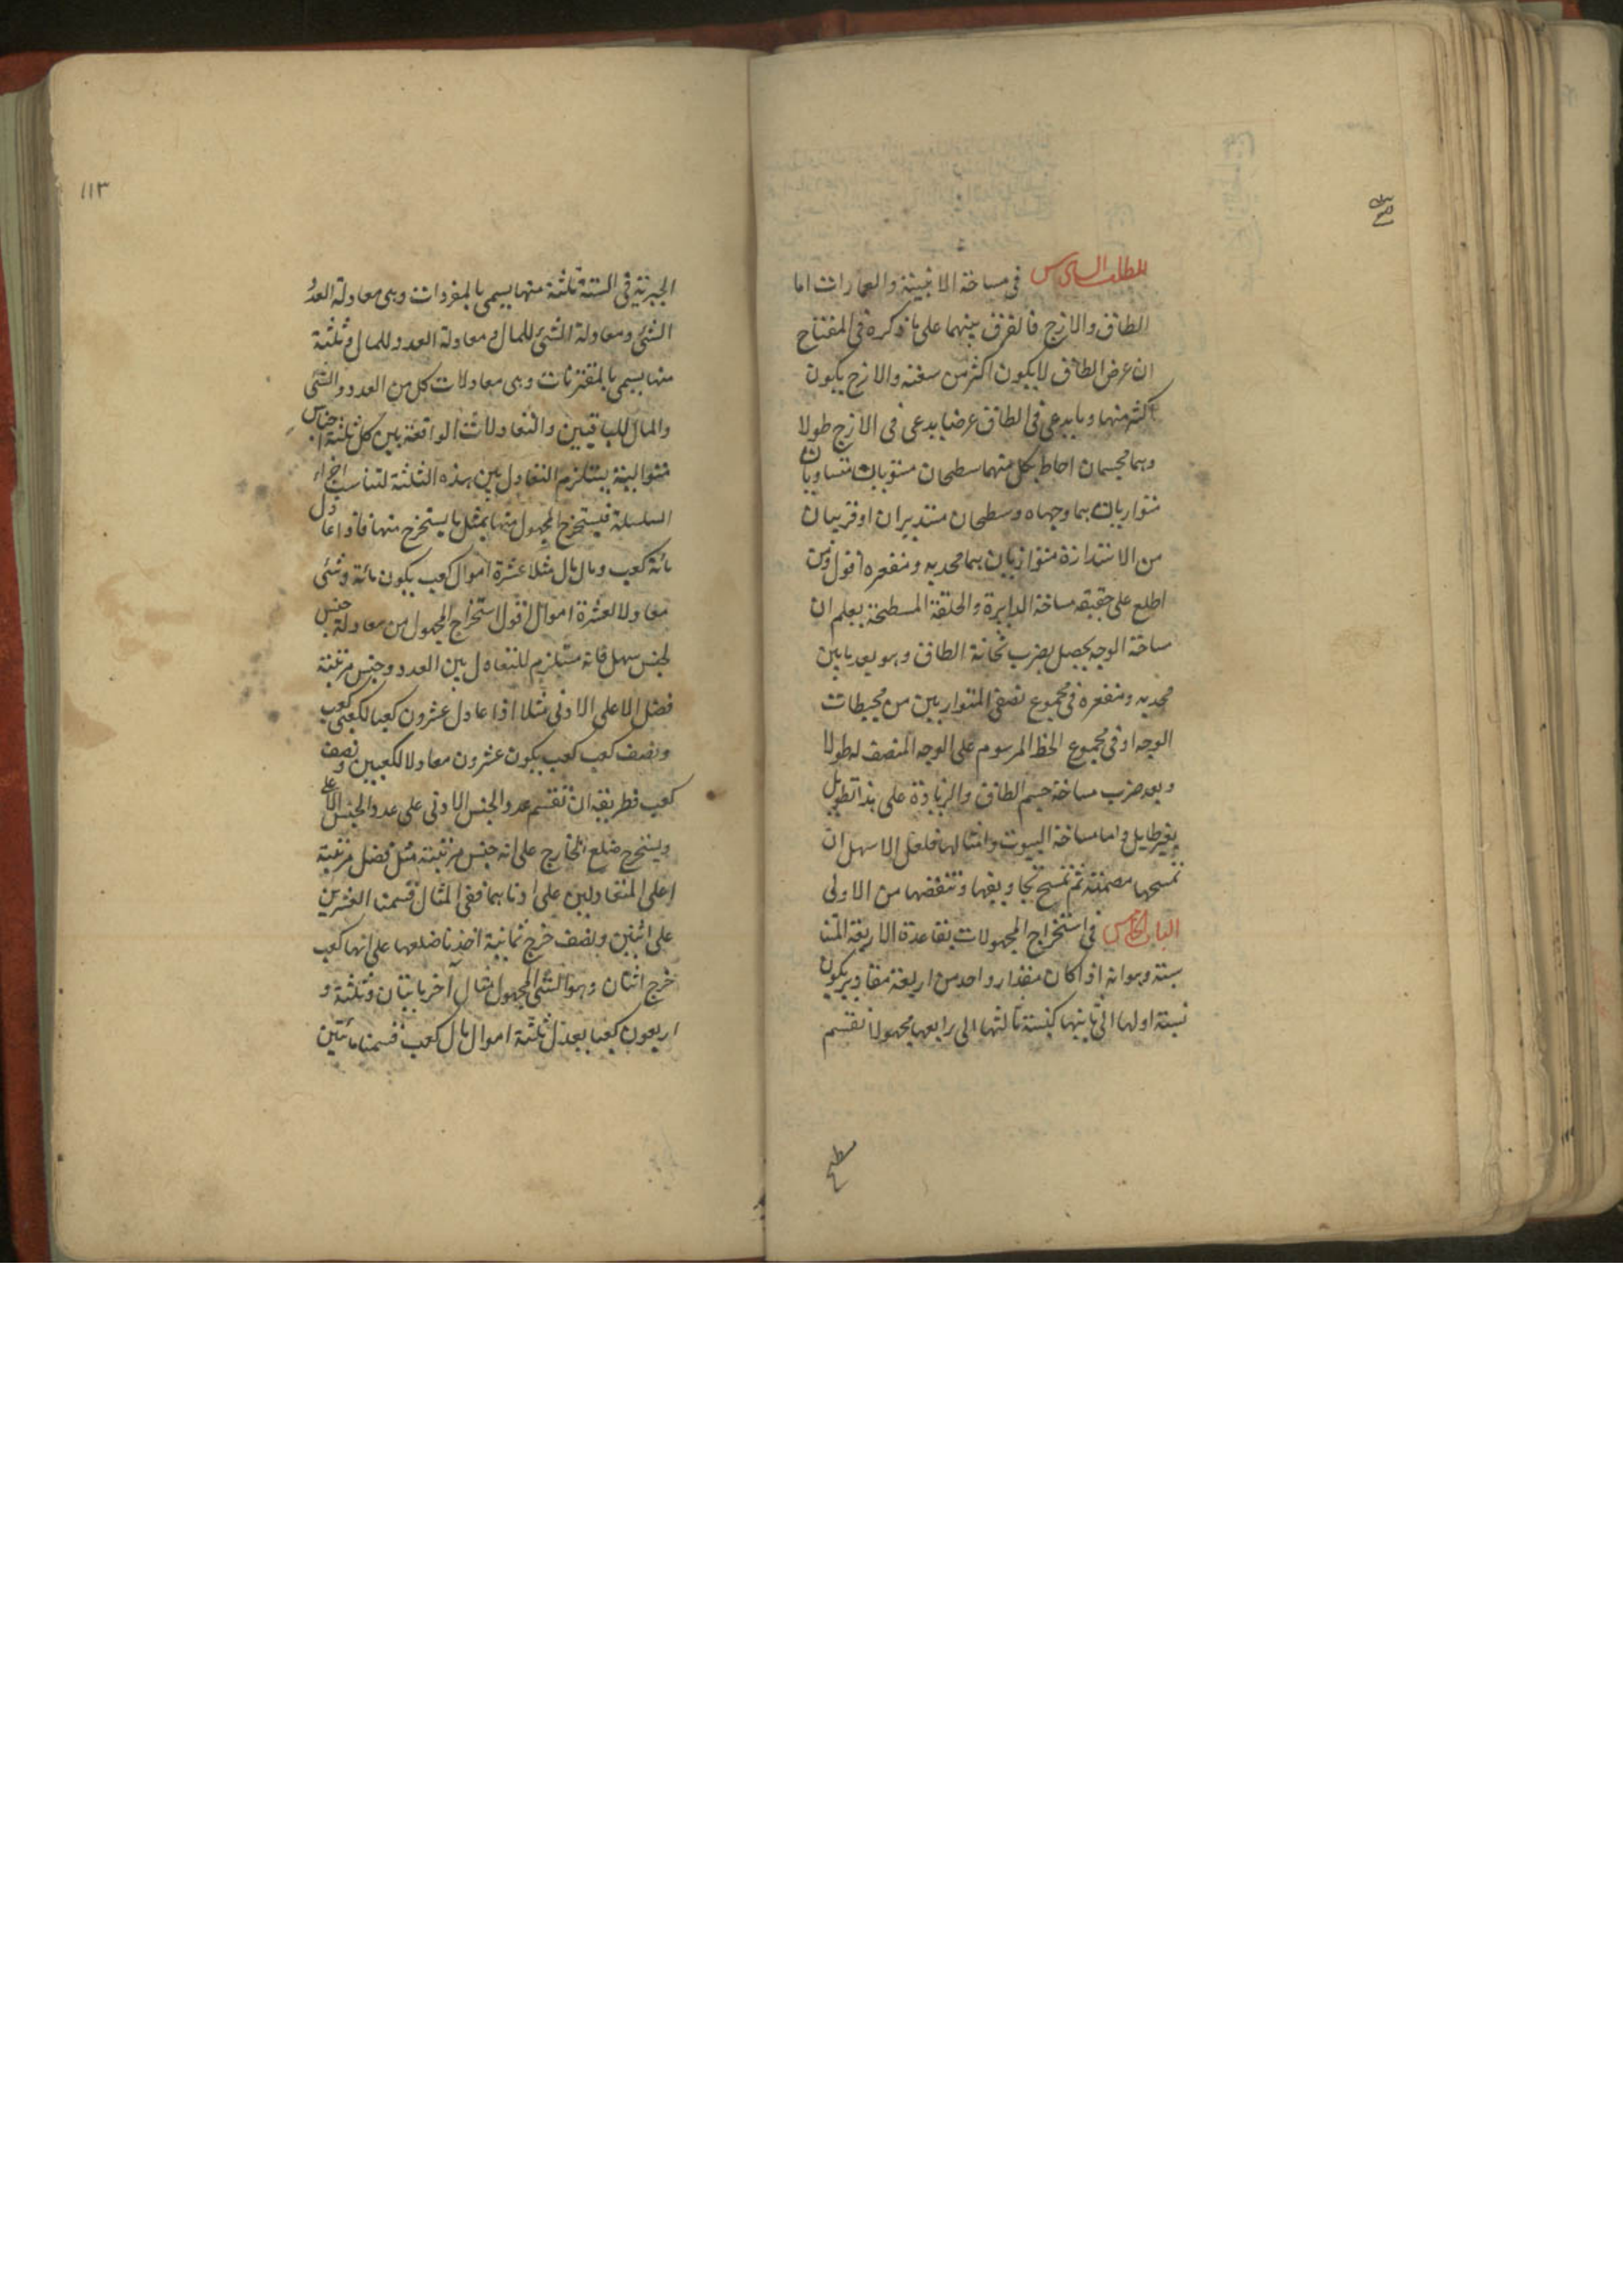 المطلب السادس في مساحة الابنية والعمارات اما
الطاق والازج فالفرق بينهما على ما ذكره في المفتاح
ان عرض الطاق لا يكون اكثر من سعته والازج يكون
اكثر منها وما يدعى في الطاق عرضا يدعى في الازج طولا
وهما مجسمان احاط بكل منهما سطحان مستويان متساويان
متوازيان هما وجهاه وسطحان مستديران او قريبان
من الاستدارة متوازيان هما محدبه ومقعره اقول ومن
اطلع على حقيقة مساحة الدايرة والحلقة المسطحة يعلم ان
مساحة الوجه يحصل بضرب ثخانة الطاق وهو بعد ما بين
محدبه ومقعره في مجموع نصفي المتوازيين من محيطات
الوجه او في مجموع الخط المرسوم على الوجه المنصف له طولا
وبعد ضرب مساحة جسم الطاق والزيادة على هذا تطويل
بغير طايل واما مساحة البيوت وامثالها فلعل الاسهل ان
تمسحها مصمتة ثم تمسح تجاويفها وتنقصها من الاولى
الباب الخامس في استخراج المجهولات بقاعدة الاربعة المتنا
سبة وهو انه اذا كان مقدار واحد من اربعة مقادير يكون
نسبة اولها الى ثانيها كنسبة ثالثها الى رابعها مجهولا نقسم
مسطح
١١٣
الجبرية في الستة ثلثة منها يسمى بالمفردات وهي معادلة العدد
الشئ ومعادلة الشئ للمال ومعادلة العدد للمال وثلثة
منها يسمى بالمقترنات وهي معادلات كل من العدد والشئ
والمال للباقيين والتعادلات الواقعة بين كل ثلثة اجناس
متوالية يستلزم التعادل بين هذه الثلثة لتناسب اجزاء
السلسلة فيستخرج المجهول منها بمثل ما يستخرج منها فاذا عادل
مائة كعب ومال مال مثلا عشرة اموال كعب يكون مائة وشئ
معادلا لعشرة اموال اقول استخراج المجهول من معادلة جنس
لجنس سهل فانه مستلزم للتعادل بين العدد وجنس مرتبة
فضل الاعلى الادنى مثلا اذا عادل عشرون كعبا لكعبي كعب
ونصف كعب كعب يكون عشرون معادلا لكعبين ونصف
كعب فطريقه ان تقسم عدد الجنس الادنى على عدد الجنس الاعلى
ويستخرج ضلع الخارج على انه جنس مرتبته مثل فضل مرتبة
اعلى المتعادلين على ادناهما ففي المثال قسمنا العشرين
على اثنين ونصف خرج ثمانية اخذنا ضلعها على انها كعب
خرج اثنان وهو الشئ المجهول مثال آخر مايتان وثلثة و
اربعون كعبا يعدل ثلثة اموال مال كعب قسمنا مائتين